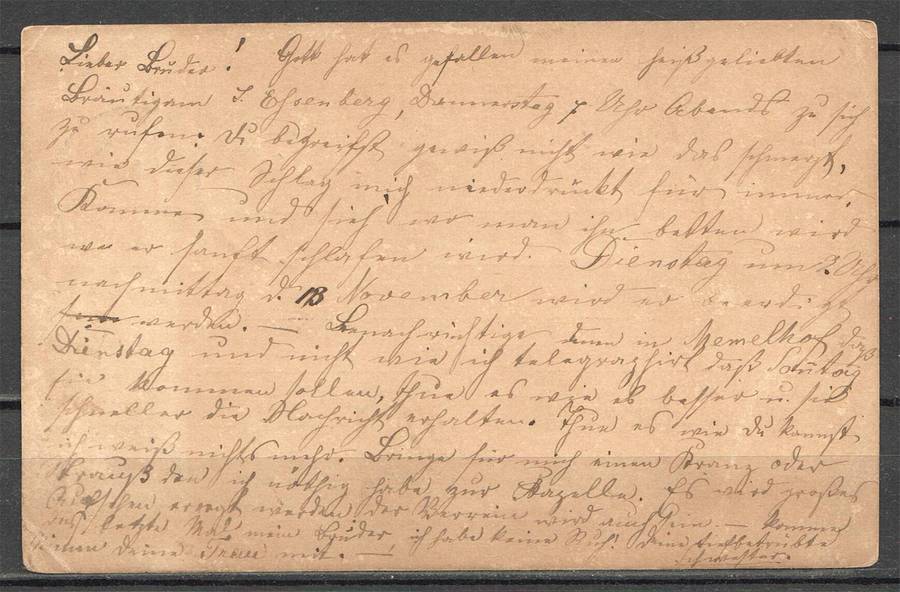 Lieber Bruder! Gott hat es gefallen meinen heißgeliebten
Bräutigam J. Ehsenberg, Donnerstag 7 Uhr Abends zu sich
zu rufen. Du begreifst gewiß nicht wie das schmerzt,
wie dieser Schlag mich niederdrückt für immer.
Komme und sieh wo man ihn betten wird
wo er sanft schlafen wird. Dienstag um 3 Uhr
nachmittag d. 13 November wird er beerdigt
werden. — Benachrichtige denen in Memelhof daß
Dienstag und nicht wie ich telegraphirt daß Sonntag
sie kommen sollen, thue es wie es besser u. sie
schneller die Nachricht erhalten. Thue es wie du kannst
ich weiß nichts mehr. Bringe für mich einen Kranz oder
Strauß den ich nöthig habe zur Kapelle. Es wird großes
Aufsehen erregt werden der Verein wird auch sein. — komme
das letzte Mal mein Bruder ich habe keine Ruh! Deine tiefbetrübte
deine Frau mit. — Schwester.